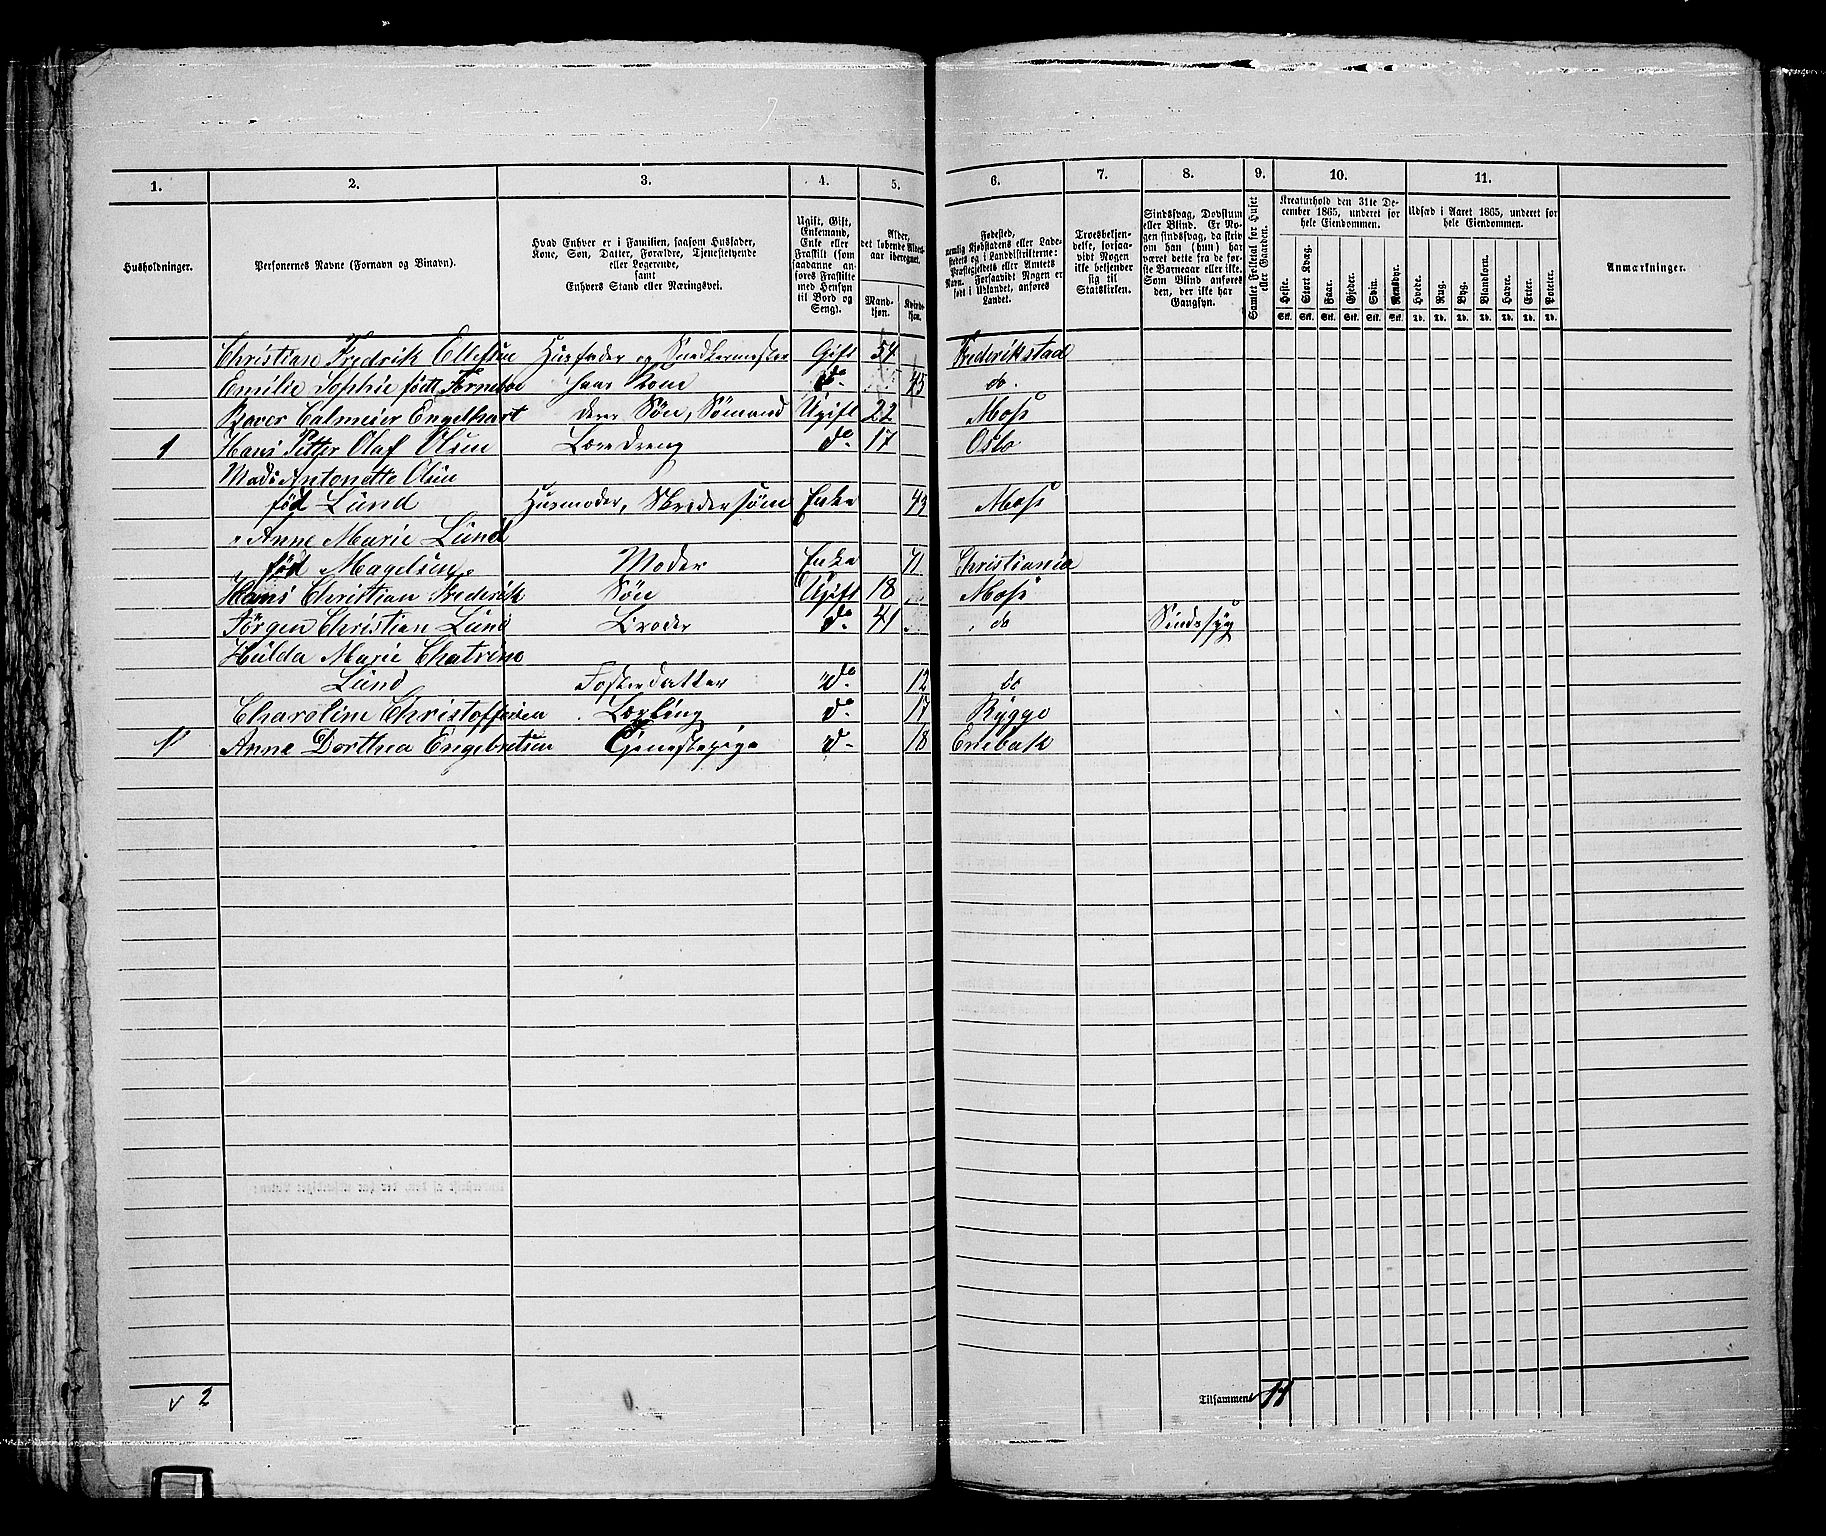 1. 2. 3. 4. 5. 6. 7. 8. 9. 10. 11.
Husholdninger.
Personernes Navne (Fornavn og Binavn).
Hvad Enhver er i Familien, saasom Husfader,
Kone, Søn, Datter, Forældre, Tjenestetyende
eller Logerende,
samt
Enhvers Stand eller Næringsvei.
Ugift, Gift,
Enkemand,
Enke eller
Fraskilt (som
saadanne an-
føres Fraskilte
med Hensyn
til Bord og
Seng).
Alder,
det løbende Alders-
aar iberegnet.
Mand-
kjøn.
Kvind-
kjøn.
Fødested,
nemlig Kjøbstadens eller Lade-
stedets og i Landdistrikterne:
Præstegjeldets eller Amtets
Navn. Forsaavidt Nogen er
født i Udlandet, anføres
Landet.
Troesbekjen-
delse, forsaa-
vidt Nogen
ikke bekjender
sig til
Statskirken.
Sindssvag, Døvstum
eller Blind. Er No-
gen sindssvag, da skriv
om han (hun) har
været dette fra de før-
ste Barneaar eller ikke.
Som Blind anføres
den, der ikke har
Gangsyn.
Samlet Folketal for Huset
eller Gaarden.
Kreaturhold den 31te De-
cember 1865, underet for
hele Eiendommen.
Heste. Stort Kvæg. Faar. Gjeder. Svin. Rensdyr.
Stk. Stk. Stk. Stk. Stk. Stk.
Udsæd i Aaret 1865, underet for
hele Eiendommen.
Hvede. Rug. Byg. Blandkorn. Havre. Erter. Poteter.
Td. Td. Td. Td. Td. Td. Td.
Anmærkninger.
Christian Fredrik Ellefsen Husfader og Snedkermester Gift 54 Frederikstad
Emilie Sophie født Torneboe hans Kone do. 45 do.
Calmeier Engelhart deres Søn, Sømand Ugift 22 Moss
1 Hans Petter Olaf Olsen Læredreng do 17 Oslo
Mads Antonette Olsen
fød Lund Husmoder, Enke 43 Moss
Anne Marie Lund
fød Magelsen Moder Enke 71 Christiania
Hans Christian Frederik Søn Ugift 18 Moss
Jørgen Christian Lund Broder do. 41 do Sindssyg
Hulda Marie Chatrine
Lund Fosterdatter do. 12 do
Charoline Christoffersen Lærling do. 17 Rygge
1 Anne Dorthea Engebretsen Tjenestepige do. 18 Enebak
v 2
Tilsammen 11